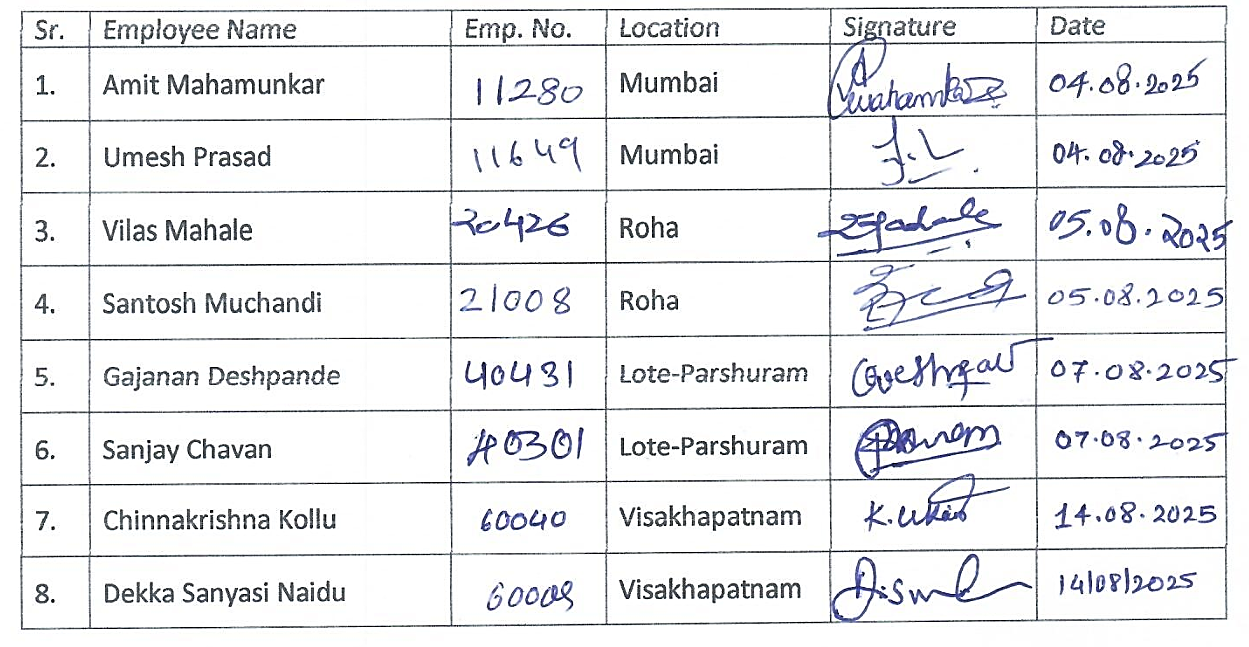 Sr. Employee Name Emp. No. Location Signature Date
1. Amit Mahamunkar 11280 Mumbai 04.08.2025
2. Umesh Prasad 11649 Mumbai 04.08.2025
3. Vilas Mahale 20426 Roha 05.08.2025
4. Santosh Muchandi 21008 Roha 05.08.2025
5. Gajanan Deshpande 40431 Lote-Parshuram 07.08.2025
6. Sanjay Chavan 40301 Lote-Parshuram 07.08.2025
7. Chinnakrishna Kollu 60040 Visakhapatnam 14.08.2025
8. Dekka Sanyasi Naidu Visakhapatnam 14/08/2025